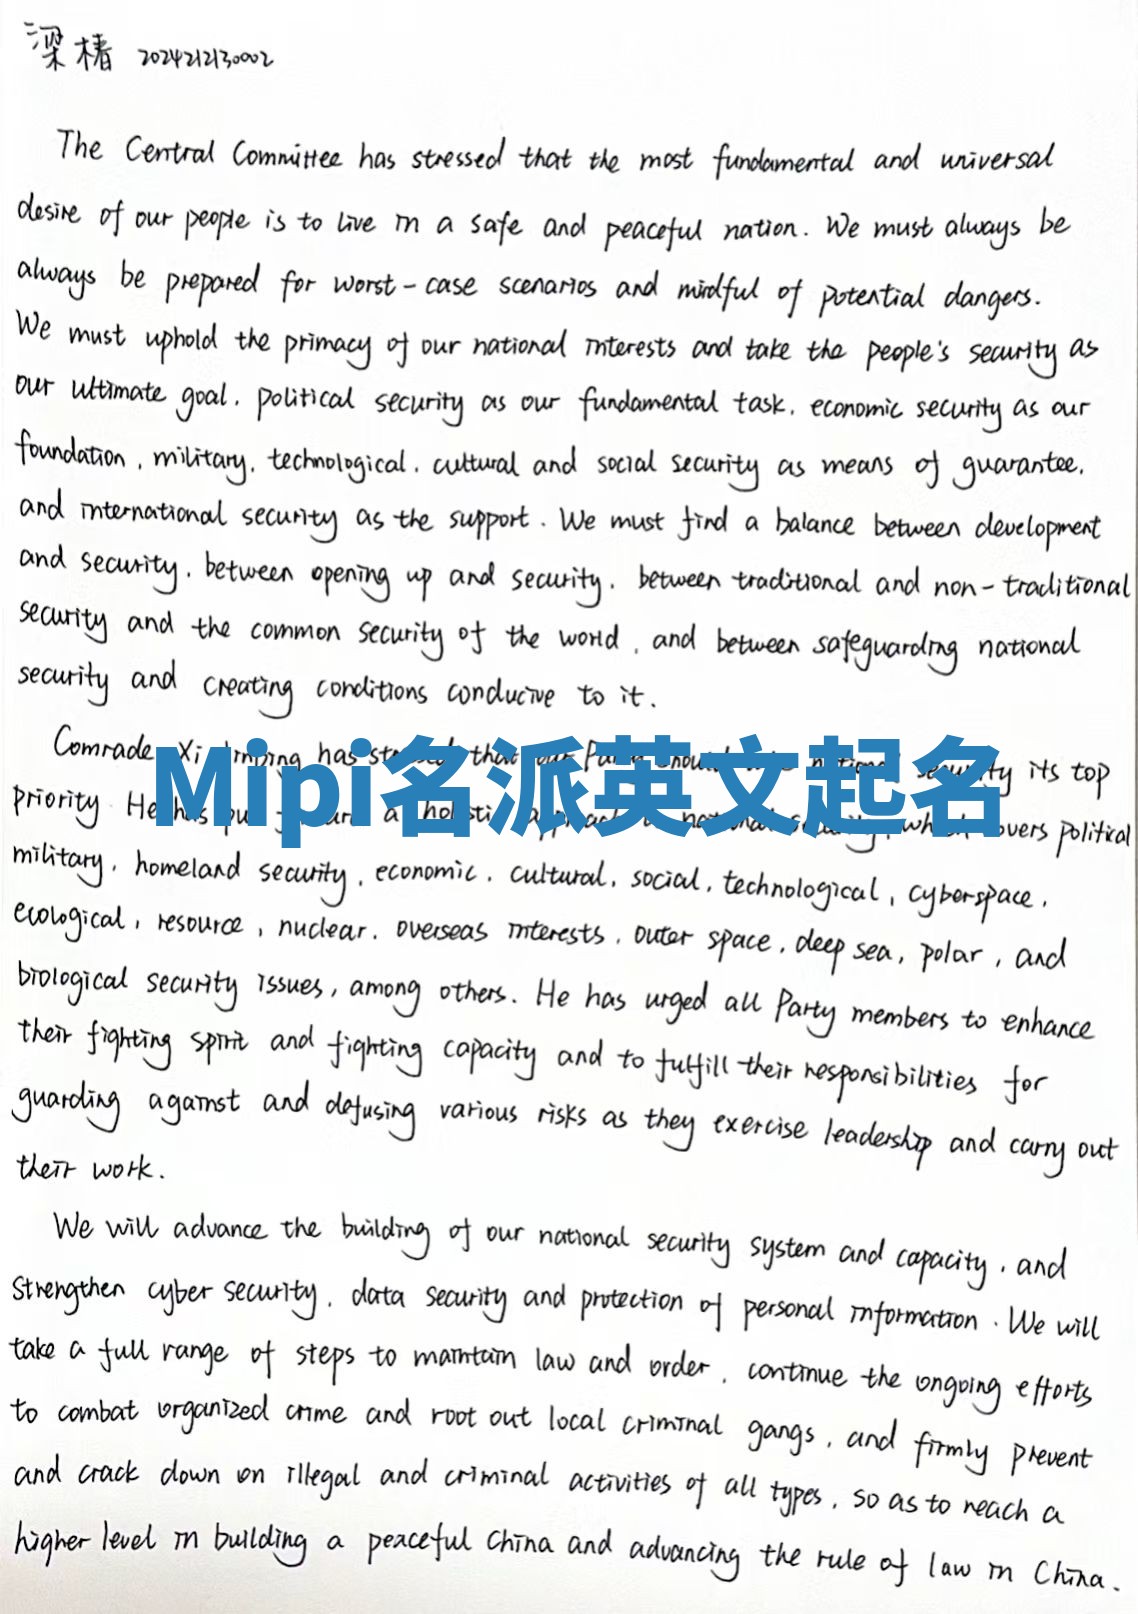 梁椿 2024212130002
The Central Committee has stressed that the most fundamental and universal
desire of our people is to live in a safe and peaceful nation. We must always be
always be prepared for worst-case scenarios and mindful of potential dangers.
We must uphold the primacy of our national interests and take the people's security as
our ultimate goal, political security as our fundamental task, economic security as our
foundation, military, technological, cultural and social security as means of guarantee,
and international security as the support. We must find a balance between development
and security, between opening up and security, between traditional and non-traditional
security and the common security of the world, and between safeguarding national
security and creating conditions conducive to it.
Comrade Xi Jinping has stressed that our Party should national security its top
Mipi名派英文起名
priority. He has put forward a holistic approach national security, which covers political
military, homeland security, economic, cultural, social, technological, cyberspace,
ecological, resource, nuclear, overseas interests, outer space, deep sea, polar, and
biological security issues, among others. He has urged all Party members to enhance
their fighting spirit and fighting capacity and to fulfill their responsibilities for
guarding against and defusing various risks as they exercise leadership and carry out
their work.
We will advance the building of our national security system and capacity, and
strengthen cyber security, data security and protection of personal information. We will
take a full range of steps to maintain law and order, continue the ongoing efforts
to combat organized crime and root out local criminal gangs, and firmly prevent
and crack down on illegal and criminal activities of all types, so as to reach a
higher level in building a peaceful China and advancing the rule of law in China.